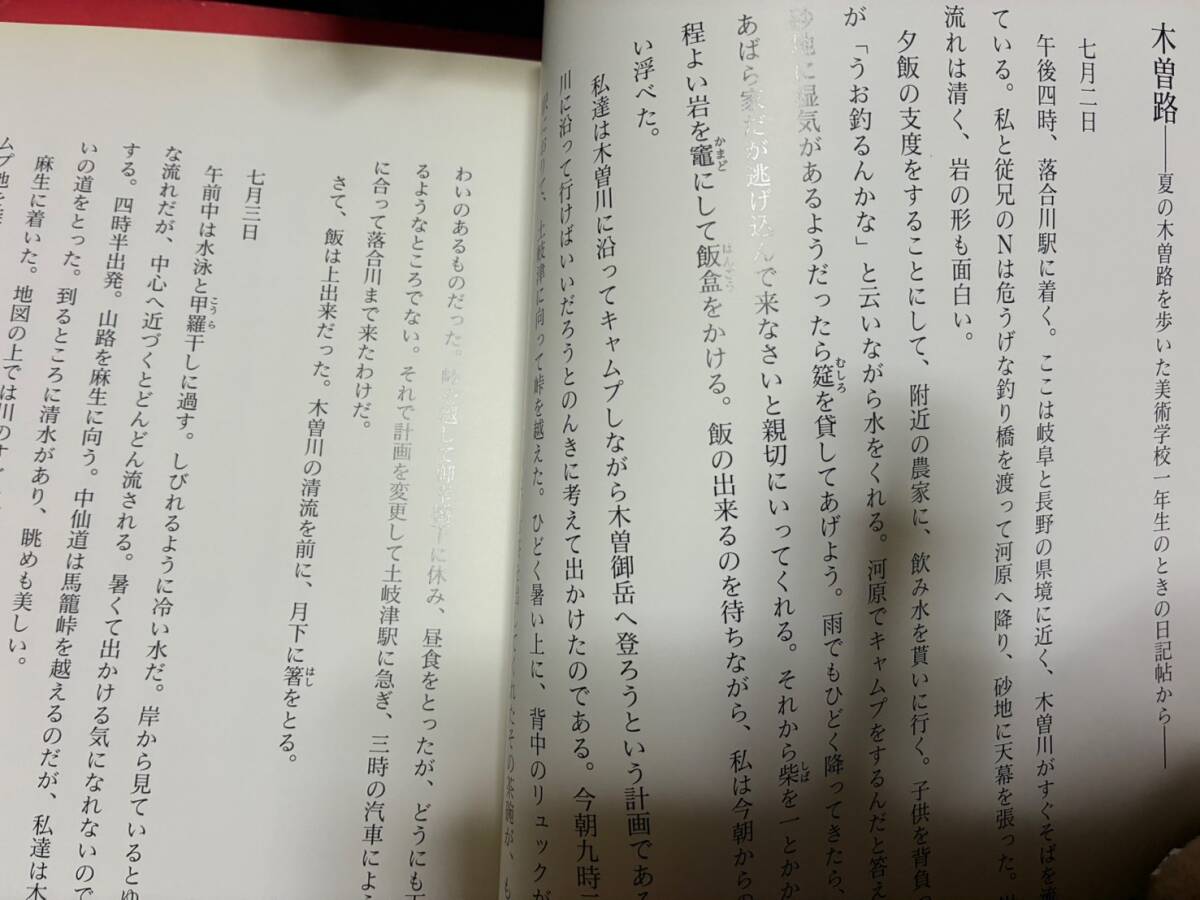 木曽路――夏の木曽路を歩いた美術学校一年生のときの日記帖から――
七月二日
午後四時、落合川駅に着く。ここは岐阜と長野の県境に近く、木曽川がすぐそばを流
ている。私と従兄のNは危うげな釣り橋を渡って河原へ降り、砂地に天幕を張った。
流れは清く、岩の形も面白い。
夕飯の支度をすることにして、附近の農家に、飲み水を貰いに行く。子供を背負
が「うお釣るんかな」と云いながら水をくれる。河原でキャムプをするんだと答え
砂地に湿気があるようだったら筵を貸してあげよう。雨でもひどく降ってきたら、
あばら家だが逃げ込んで来なさいと親切にいってくれる。それから柴を一とかか
程よい岩を竈にして飯盒をかける。飯の出来るのを待ちながら、私は今朝からの
い浮べた。
私達は木曽川に沿ってキャムプしながら木曽御岳へ登ろうという計画である
川に沿って行けばいいだろうとのんきに考えて出かけたのである。今朝九時
おりて、土岐津に向って峠を越えた。ひどく暑い上に、背中のリュックが
してくれたその茶碗が、も
わいのあるものだった。峠を越して
に休み、昼食をとったが、どうにも
るようなところでない。それで計画を変更して土岐津駅に急ぎ、三時の汽車によ
に合って落合川まで来たわけだ。
さて、飯は上出来だった。木曽川の清流を前に、月下に箸をとる。
七月三日
午前中は水泳と甲羅干しに過す。しびれるように冷い水だ。岸から見ているとゆ
な流れだが、中心へ近づくとどんどん流される。暑くて出かける気になれないので
する。四時半出発。山路を麻生に向う。中仙道は馬籠峠を越えるのだが、私達は木
いの道をとった。到るところに清水があり、眺めも美しい。
麻生に着いた。地図の上では川のす
ムプ地を